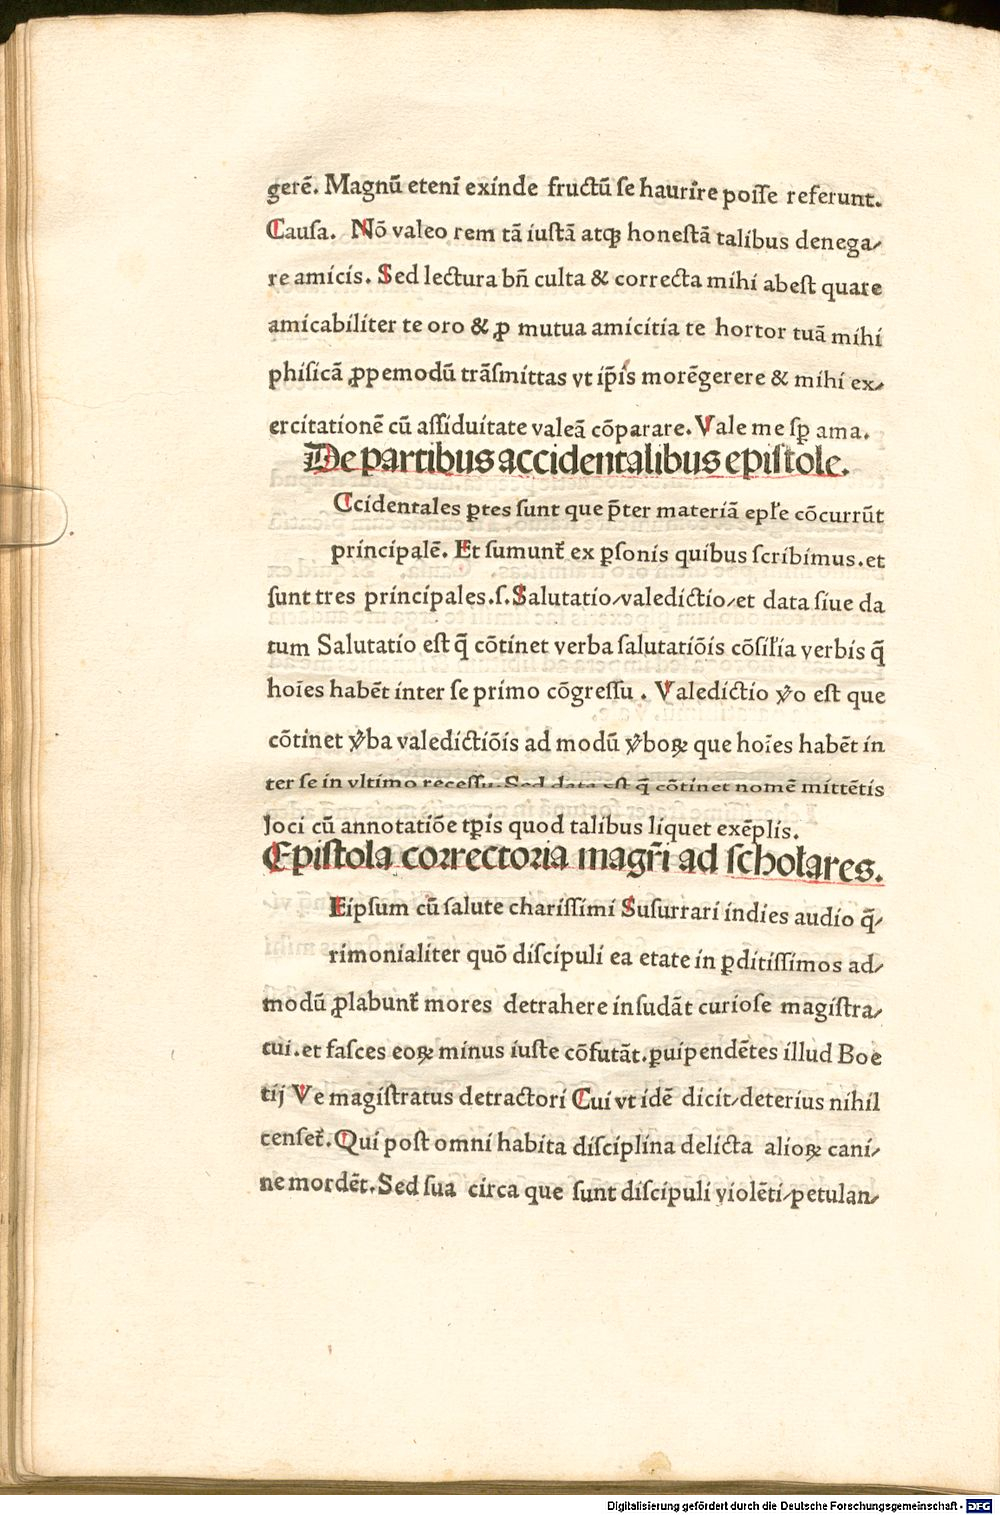 gerē. Magnū etenī exinde fructū se haurire posse referunt.
Causa. Nō valeo rem tā iustā atqꝫ honestā talibus denega⸗
re amicis. Sed lectura bn̄ culta & correcta mihi abest quare
amicabiliter te oro & ꝓ mutua amicitia te hortor tuā mihi
phisicā ꝓpemodū trāsmittas vt ip̄is morēgerere & mihi ex⸗
ercitationē cū assiduitate valeā cōparare. Vale me sꝑ ama.
De partibus accidentalibus epistole.
Ccidentales ꝑtes sunt que p̄ter materiā epłe cōcurrūt
principalē. Et sumunt̄ ex ꝑsonis quibus scribimus. et
sunt tres principales. s. Salutatio/valedictio/et data siue da
tum Salutatio est q̄ cōtinet verba salutatiōis cōsiłia verbis q̄
hoīes habēt inter se primo cōgressu. Valedictio v̊o est que
cōtinet v̊ba valedictiōis ad modū v̊boꝝ que hoīes habēt in
ter se in vltimo recessu. Sed data est q̄ cōtinet nomē mittētis
loci cū annotatiōe tꝑis quod talibus liquet exēplis.
Epistola correctoria magr̄i ad schołares.
Eipsum cū salute charissimi Susurrari indies audio q̄⸗
rimonialiter quō discipuli ea etate in ꝑditissimos ad⸗
modū ꝓlabunt̄ mores detrahere insudāt curiose magistra⸗
tui. et fasces eoꝝ minus iuste cōfutāt. ꝑuipendētes illud Boe
tij Ve magistratus detractori Cui vt idē dicit/deterius nihil
censet̄. Qui post omni habita disciplina delicta alioꝝ cani⸗
ne mordēt. Sed sua circa que sunt discipuli violēti/petulan⸗
Digitalisierung gefördert durch die Deutsche Forschungsgemeinschaft - DFG